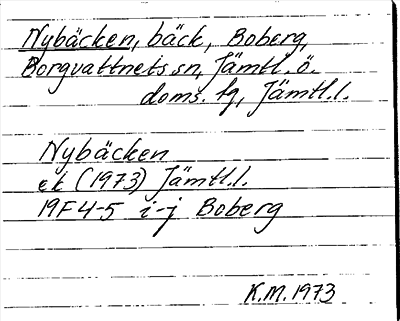 Nybäcken, bäck, Boberg,
Borgvattnets sn, Jämtl. ö.
doms. tg, Jämtl. l.
Nybäcken
ek (1973) Jämtl. l.
19F 4-5 i-j Boberg
K.M. 1973